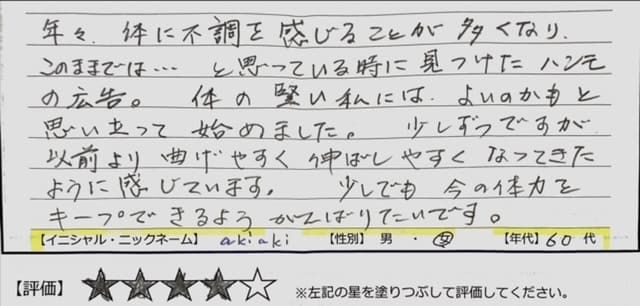 年々、体に不調を感じることが多くなり、
このままでは… と思っている時に見つけたハンモ
の広告。 体の堅い私には、よいのかもと
思い立って始めました。 少しずつですが
以前より曲げやすく伸ばしやすくなってきた
ように感じています。 少しでも今の体力を
キープできるようがんばりたいです。
【イニシャル・ニックネーム】 akiaki 【性別】 男 ・ 女 【年代】 60 代
【評価】 ★★★★☆ ※左記の星を塗りつぶして評価してください。